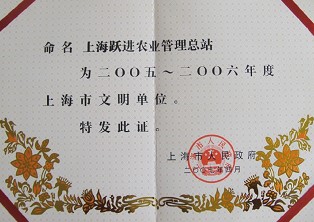 命名 上海跃进农业管理总站
为二〇〇五～二〇〇六年度
上海市文明单位。
特发此证。
上海市人民政府
二〇〇七年四月